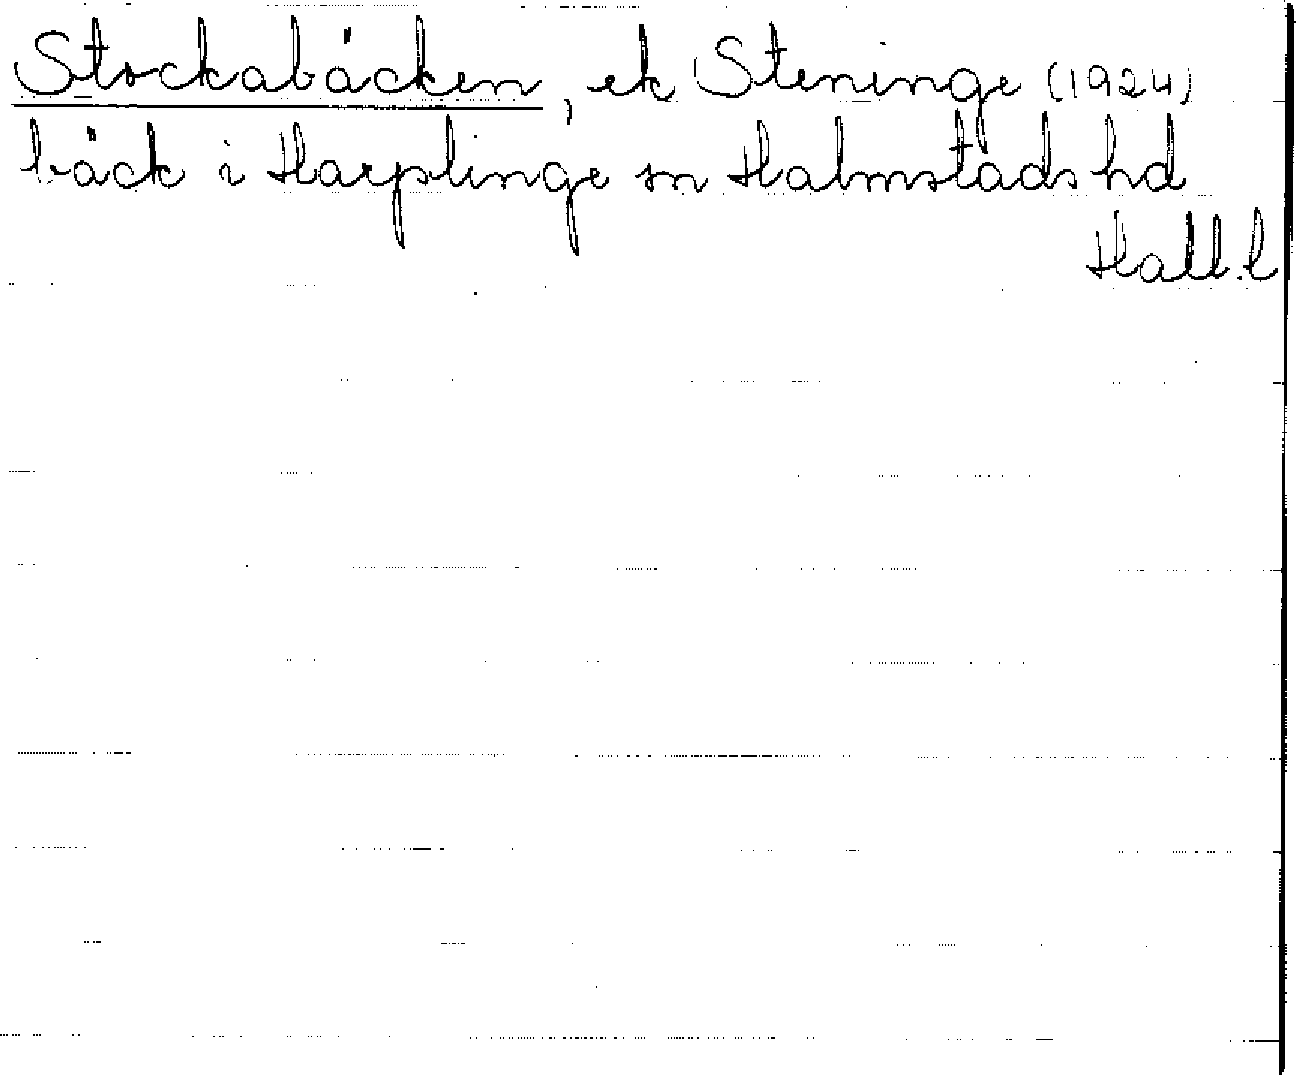 Stockabäcken, ek Steninge (1924)
bäck i Harplinge sn Halmstads hd
Hall.l